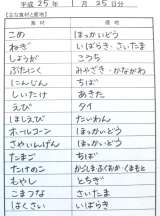 平成 25年 1月 25日分
【主な食材と産地】
食材 産地
こめ ほっかいどう
ねぎ いばらき・さいたま
しょうが こうち
ぶたにく みやざき・かながわ
にんじん ちば
しいたけ あきた
えび タイ
ほしえび たいわん
ホールコーン ほっかいどう
さやいんげん ほっかいどう
たまご ちば
たけのこ かごしま・ふくおか・くまもと
もやし とちぎ
こまつな さいたま
はくさい いばらき